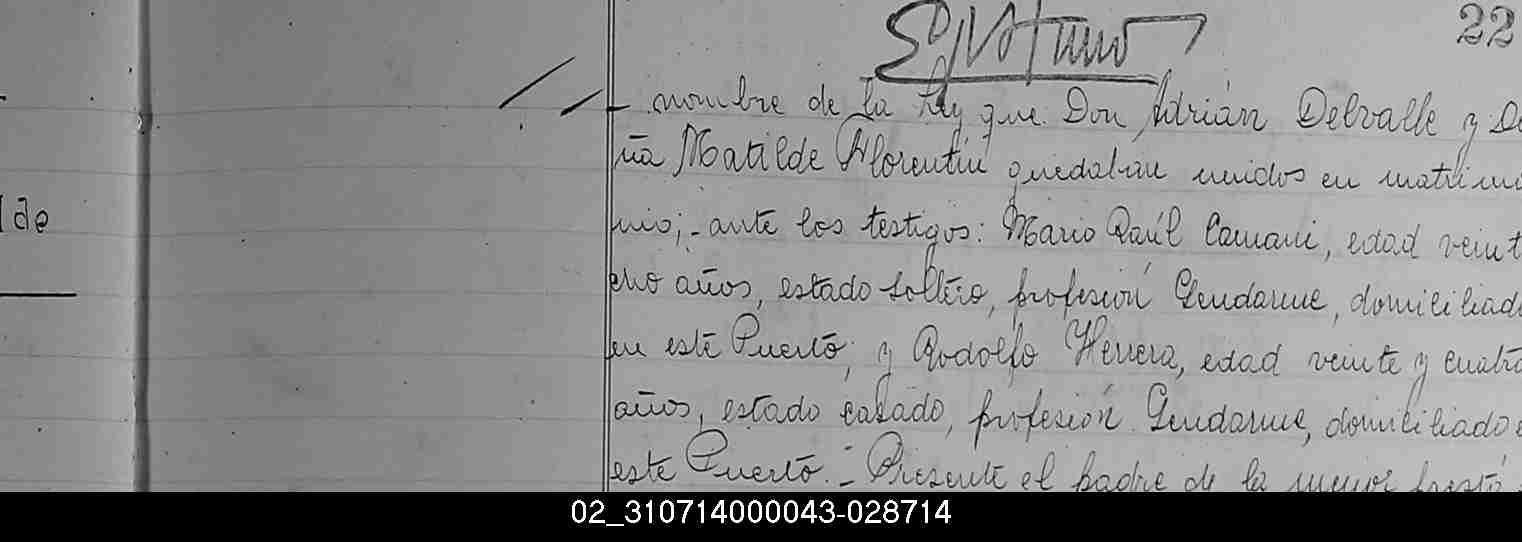 22
nombre de la Ley que Don Adrián Delvalle y Do
ña Matilde Florentin quedaban unidos en matrimo
nio; - ante los testigos: Mario Raúl Camani, edad veint
cho años, estado soltero, profesión Gendarme, domiciliado
en este Puerto; y Rodolfo Herrera, edad veinte y cuatro
años, estado casado, profesión Gendarme, domiciliado e
de
este Puerto. - Presente el padre de la menor prestó
02_310714000043-028714